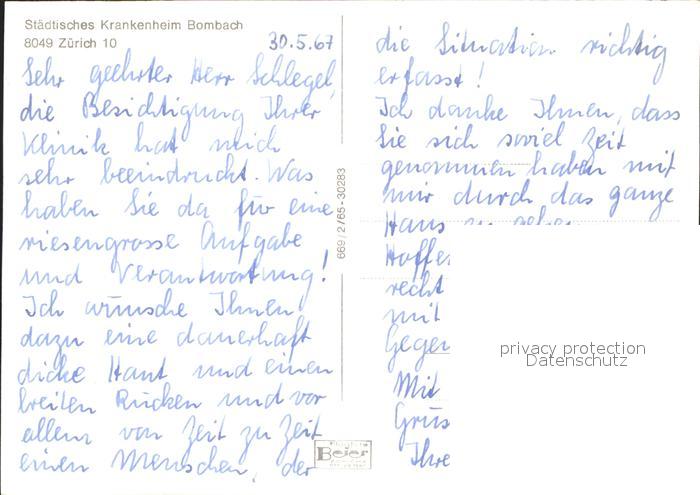 Städtisches Krankenheim Bombach
8049 Zürich 10
30.5.67
Sehr geehrter Herr Schlegel,
die Besichtigung Ihrer
Klinik hat mich
sehr beeindruckt. Was
haben Sie da für eine
riesengrosse Aufgabe
und Verantwortung!
Ich wünsche Ihnen
dazu eine dauerhaft
dicke Haut und einen
breiten Rücken und vor
allem von Zeit zu Zeit
einen Menschen, der
die Situation richtig
erfasst!
Ich danke Ihnen, dass
Sie sich soviel Zeit
genommen haben mit
mir durch das ganze
Haus zu gehen.
Hoffe
recht
mit
Gegen
Mit
Grüs
Ihre
669/2/65-30283
Beier
privacy protection
Datenschutz